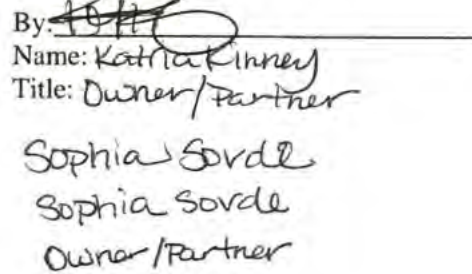 By:
Name: Katria Kinney
Title: Owner/Partner
Sophia Sorde
Sophia Sorde
Owner/Partner